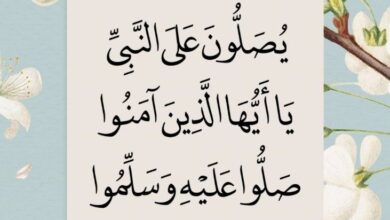 يُصَلُّونَ عَلَى النَّبِيِّ
يَا أَيُّهَا الَّذِينَ آمَنُوا
صَلُّوا عَلَيْهِ وَسَلِّمُوا